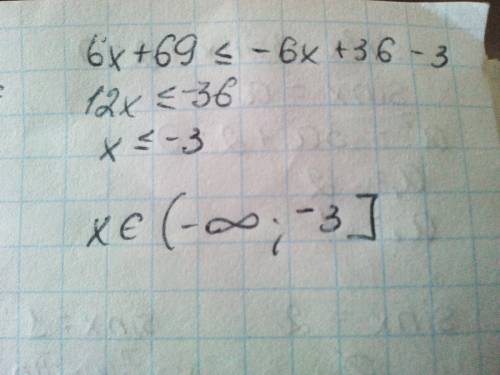 6x+69 ≤ -6x +36 -3
12x ≤ -36
x ≤ -3
x ∈ (-∞; -3]